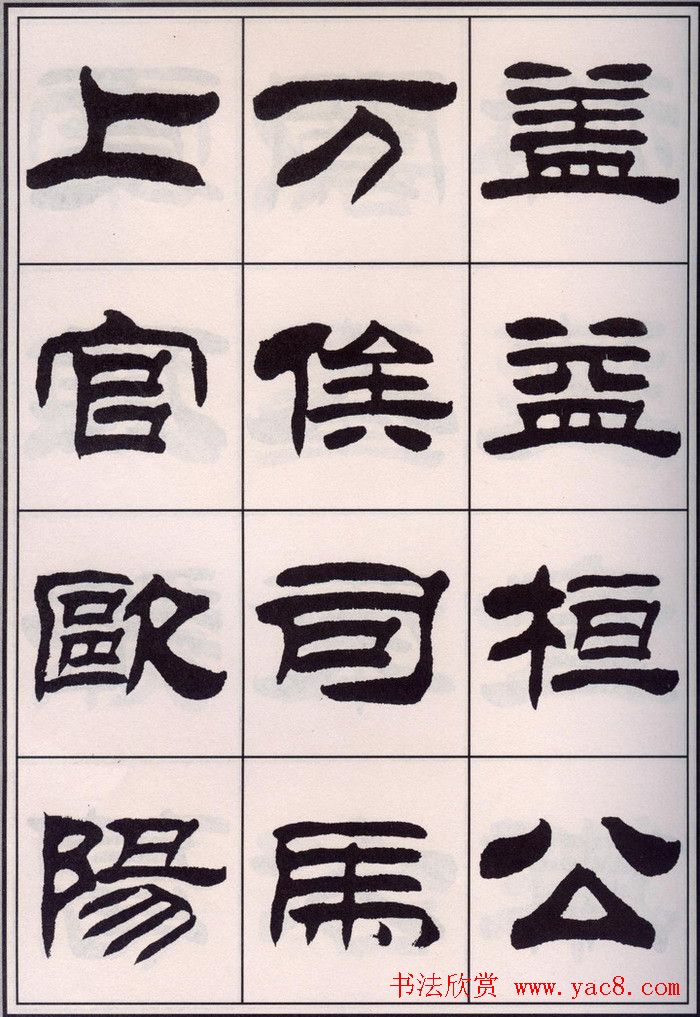 盖益桓公
万俟司馬
上官歐陽
书法欣赏 www.yac8.com